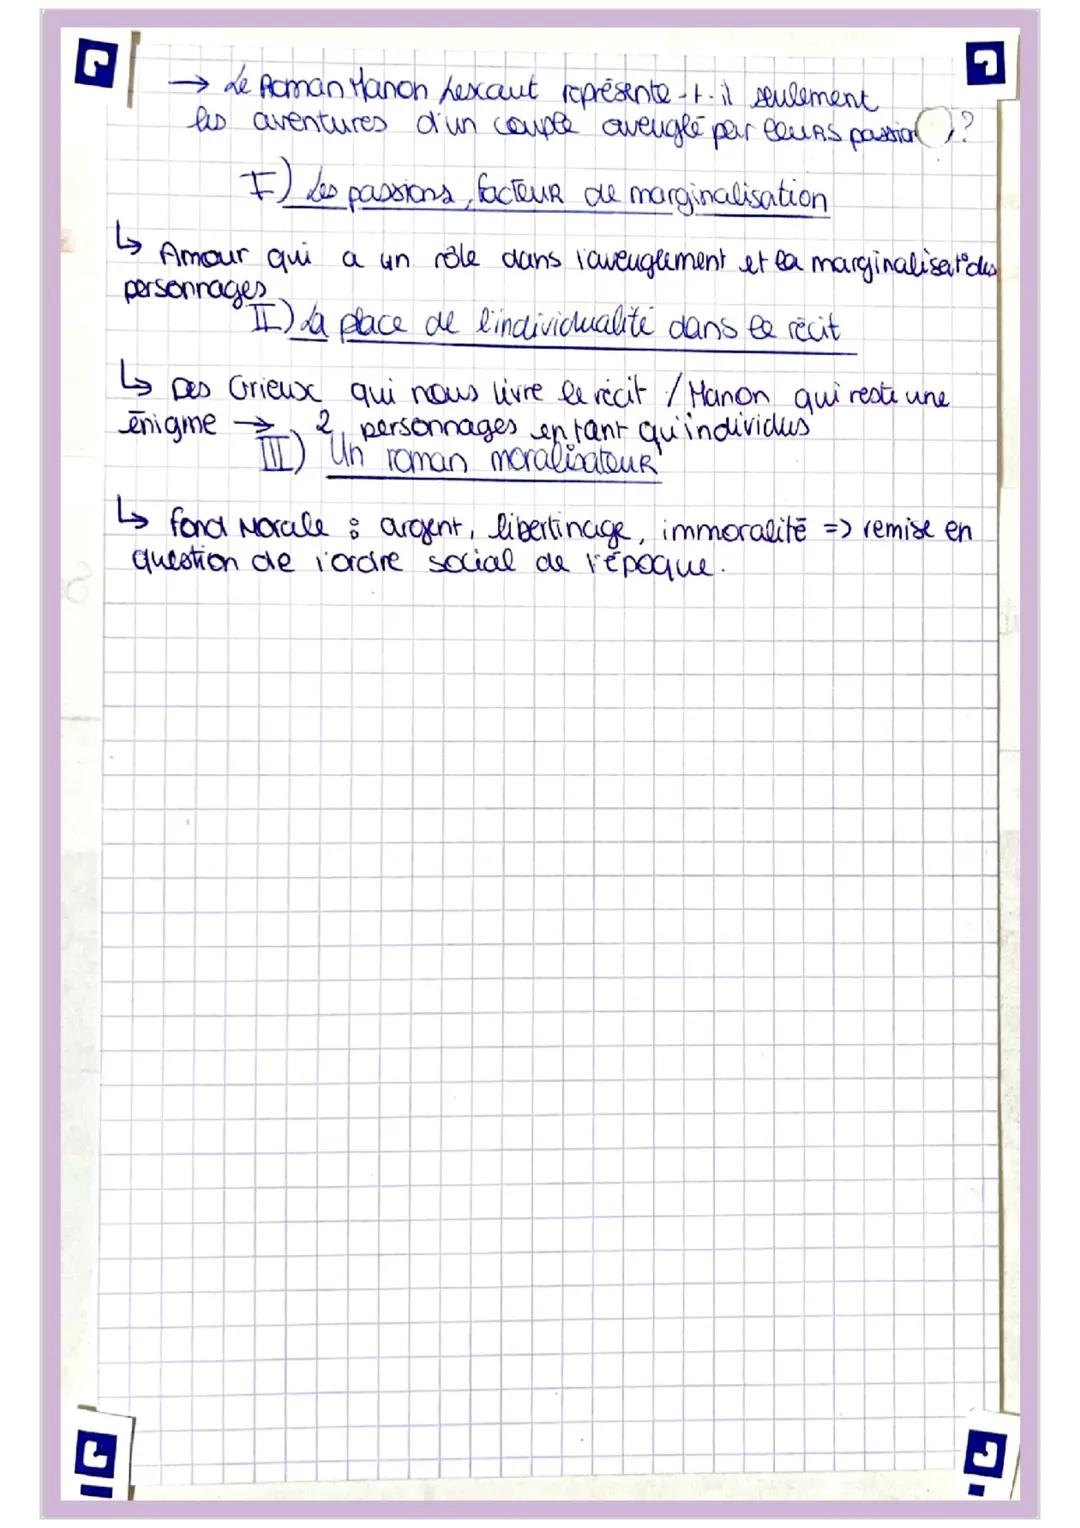 → Le Roman Manon Lescaut représente-t-il seulement
les aventures d'un couple aveuglé par leurs passion ?
I) Les passions, facteur de marginalisation
↳ Amour qui a un rôle dans l'aveuglement et la marginalisat° des
personnages
II) La place de l'individualité dans le récit
↳ Des Grieux qui nous livre le récit / Manon qui reste une
énigme → 2 personnages en tant qu'individus
III) Un roman moralisateur
↳ fond Morale : argent, libertinage, immoralité => remise en
question de l'ordre social de l'époque.